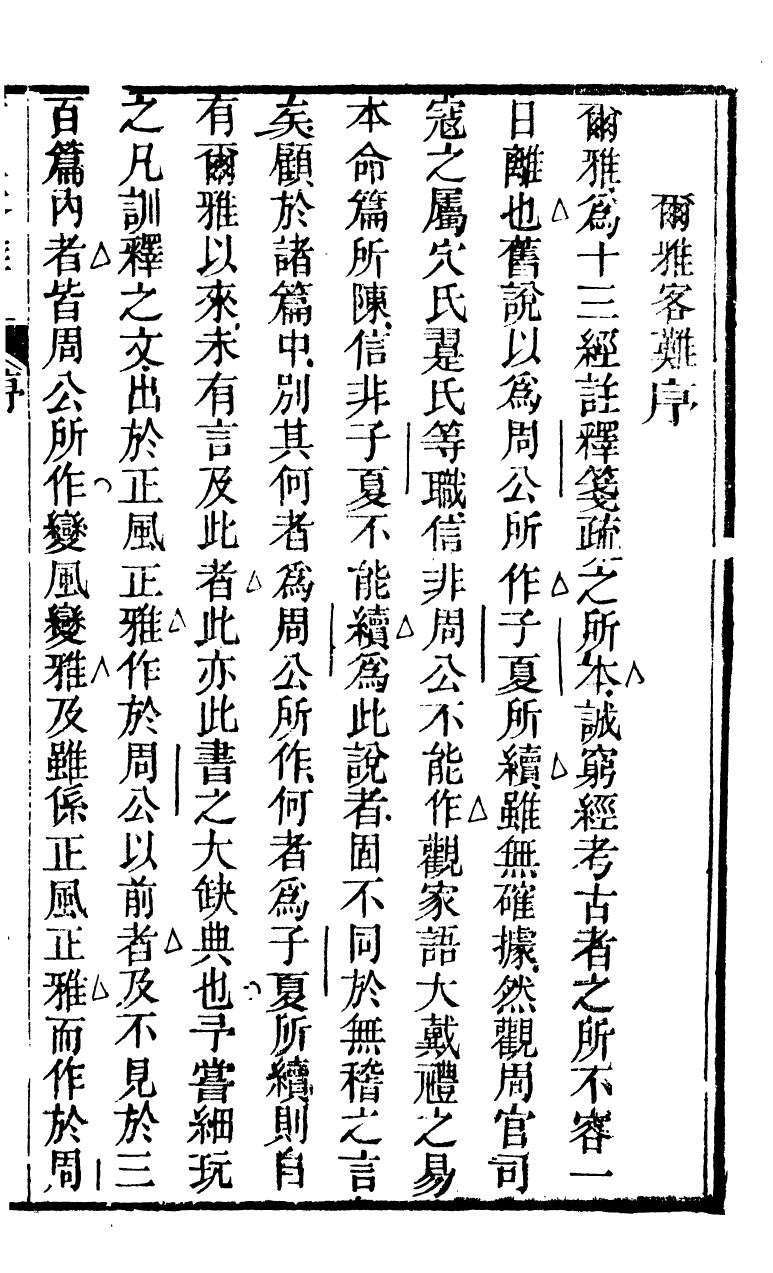 爾雅客難序
爾雅爲十三經註釋箋疏之所本誠窮經考古者之所不容一
日離也舊說以爲周公所作子夏所續雖無確據然觀周官司
寇之屬穴氏翨氏等職信非周公不能作觀家語大戴禮之易
本命篇所陳信非子夏不能續爲此說者固不同於無稽之言
矣顧於諸篇中別其何者爲周公所作何者爲子夏所續則自
有爾雅以來未有言及此者此亦此書之大缺典也予嘗細玩
之凡訓釋之文出於正風正雅作於周公以前者及不見於三
百篇內者皆周公所作變風變雅及雖係正風正雅而作於周
序